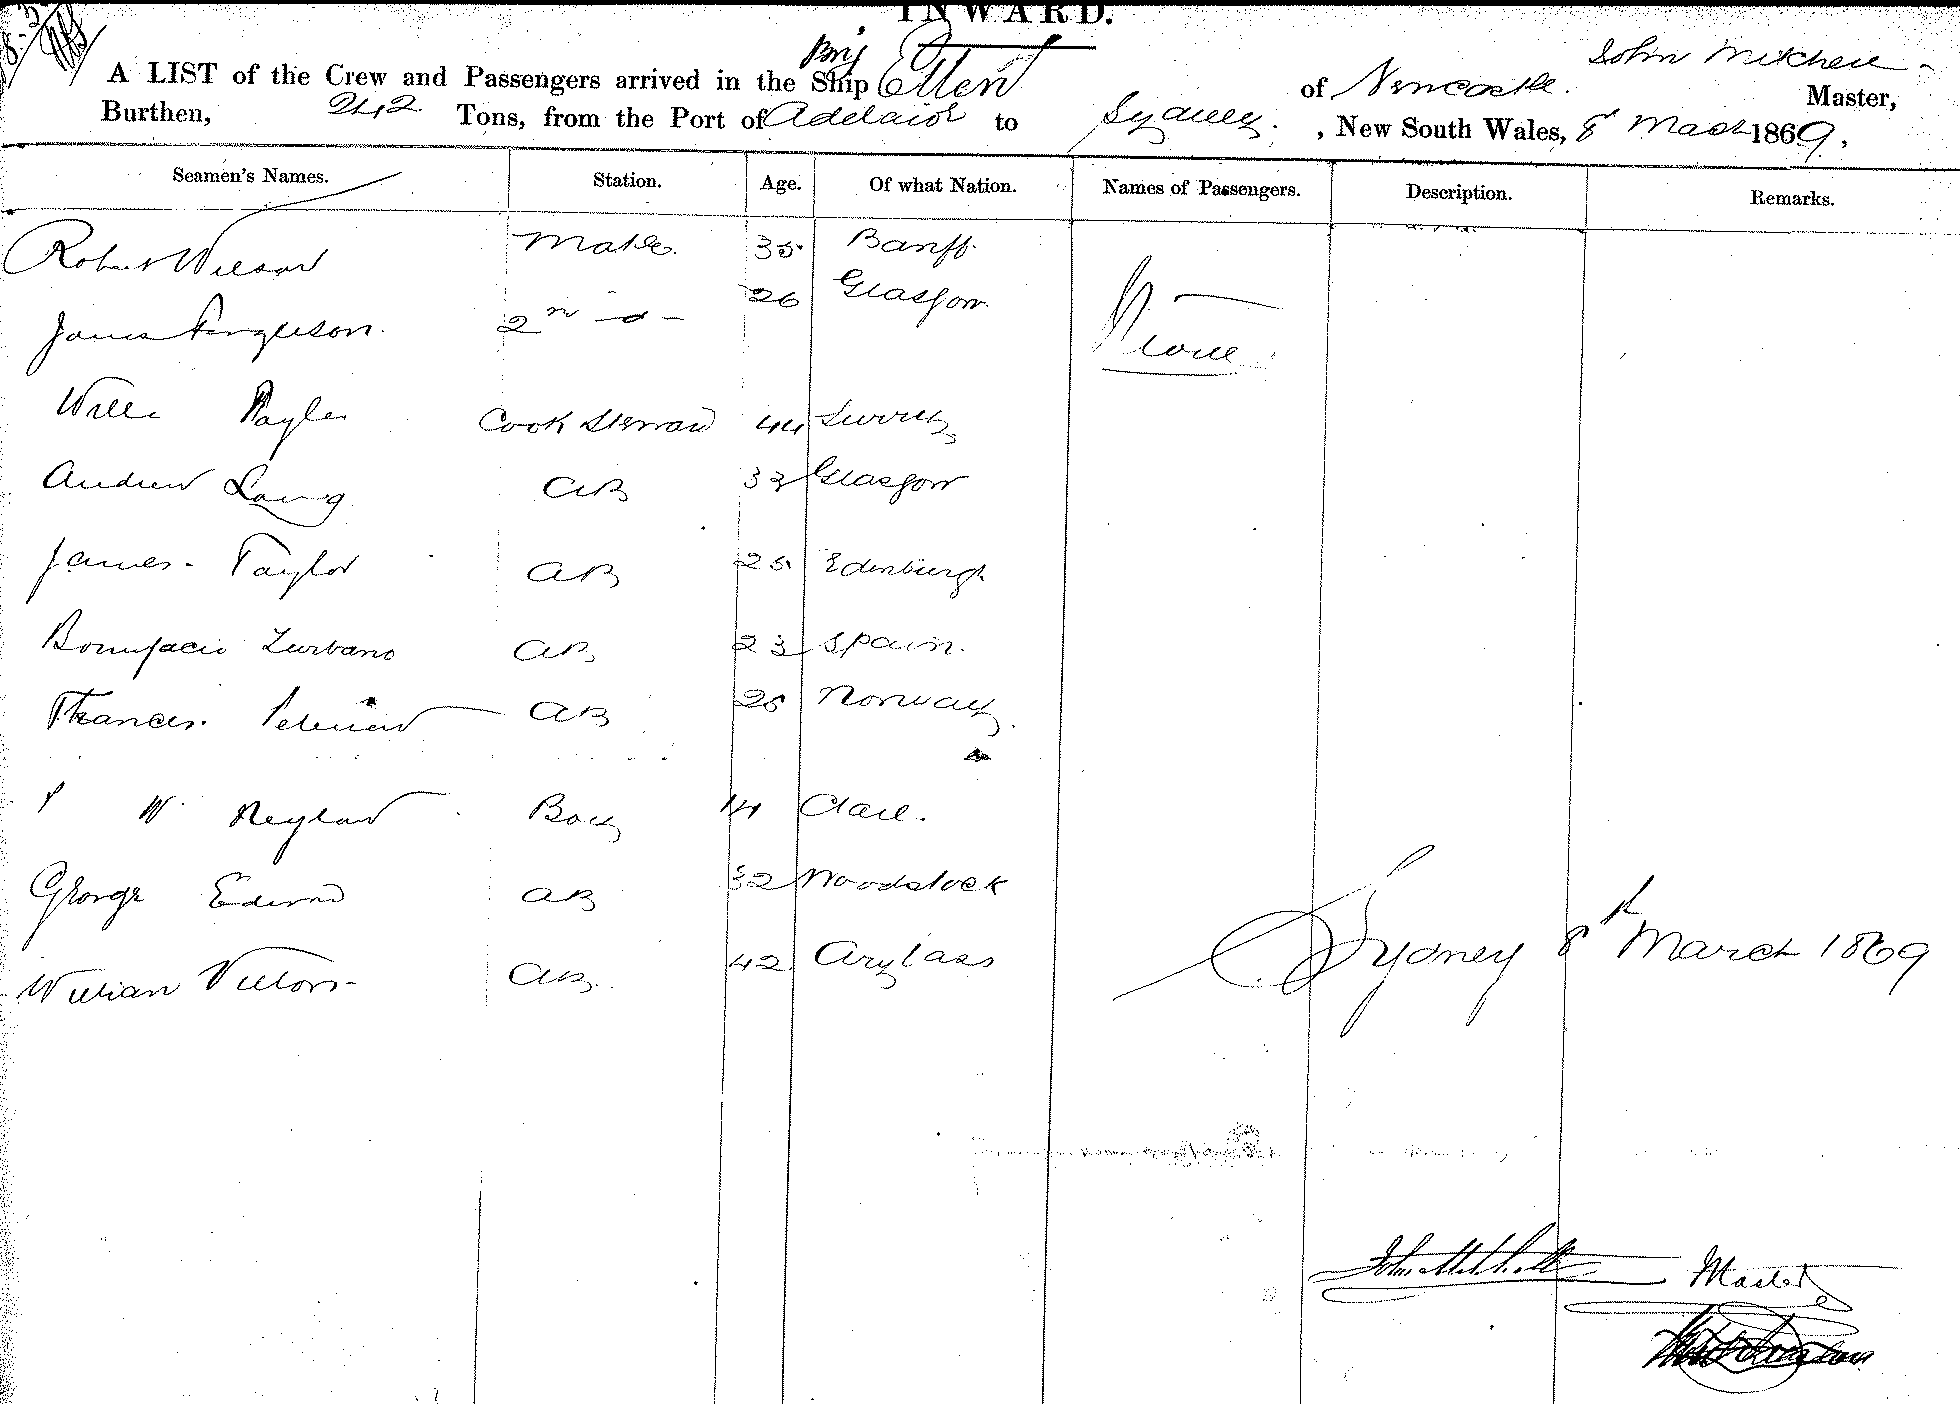 INWARD.
A LIST of the Crew and Passengers arrived in the Ship Brig Ellen of Newcastle. John Mitchell Master,
Burthen, 242 Tons, from the Port of Adelaide to Sydney. , New South Wales, 8 March 1869.
Seamen's Names. Station. Age. Of what Nation. Names of Passengers. Description. Remarks.
Robert Wilson Mate. 35 Banff
James Ferguson. 2nd do 26 Glasgow
None
Willm Cook Steward 44 Surrey
Andrew Laing AB 33 Glasgow
James Taylor AB 25 Edinburgh
Bonifacio Zurbano AB 23 Spain.
Frances. AB 25 Norway.
W Neylan Boy 14 Clare.
George Edward AB 32 Woodstock
William AB. 42
Sydney 8th March 1869
John Mitchell Master